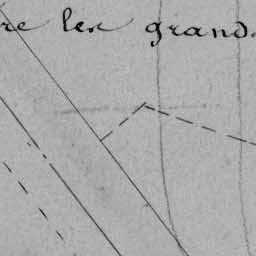 re les grand.